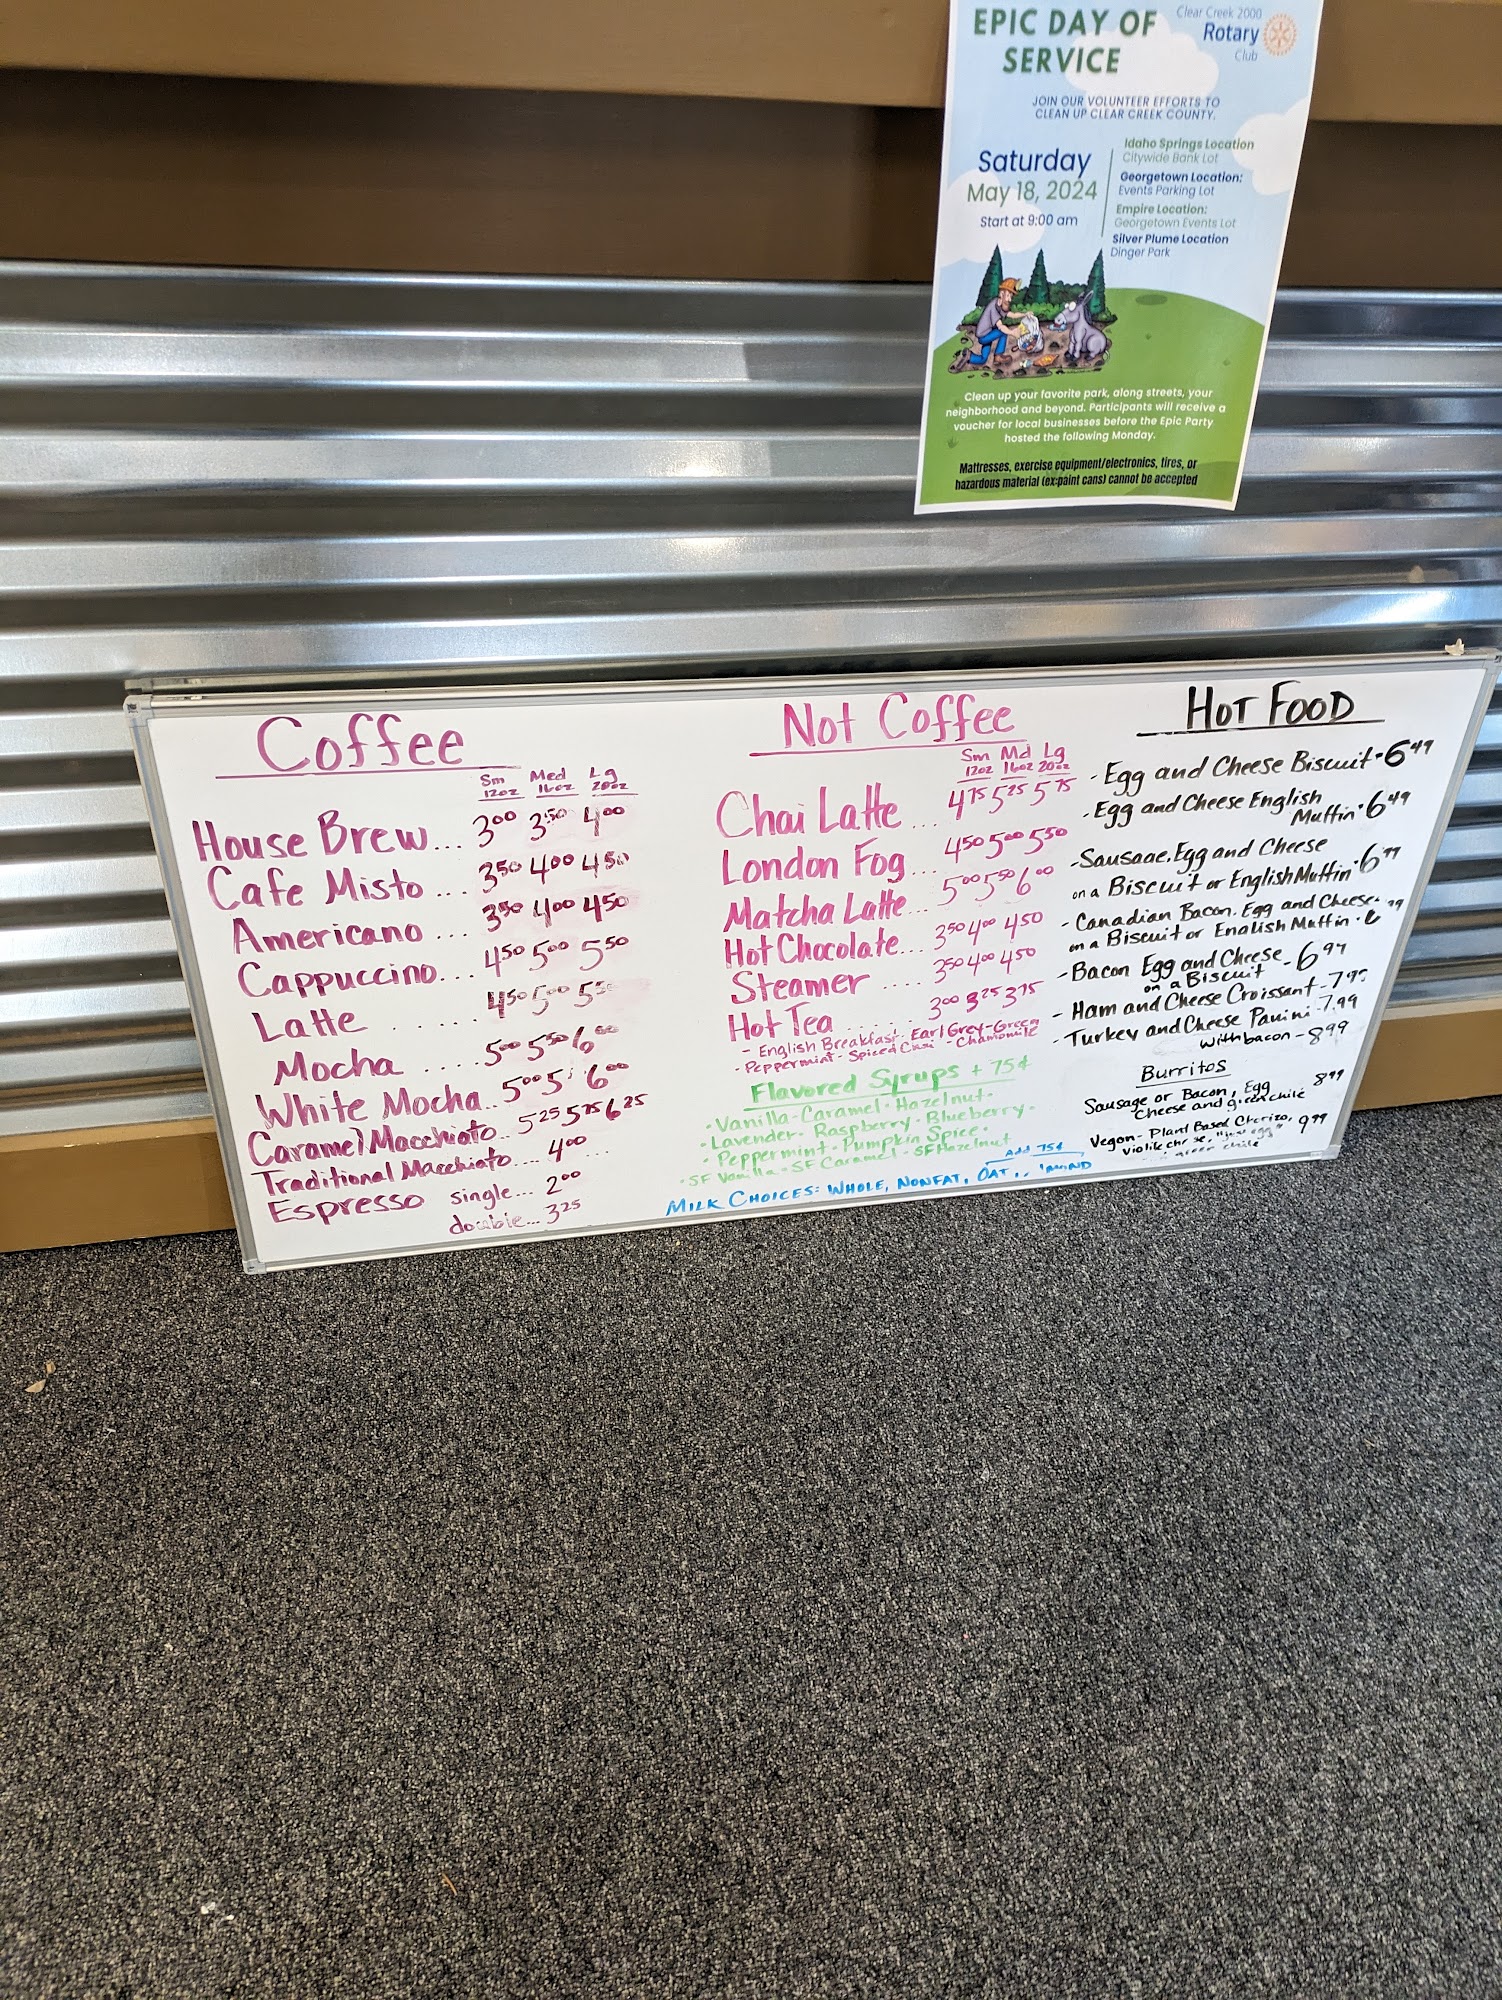 EPIC DAY OF
SERVICE
Clear Creek 2000
Rotary
Club
JOIN OUR VOLUNTEER EFFORTS TO
CLEAN UP CLEAR CREEK COUNTY.
Saturday
May 18, 2024
Start at 9:00 am
Idaho Springs Location
Citywide Bank Lot
Georgetown Location:
Events Parking Lot
Empire Location:
Georgetown Events Lot
Silver Plume Location
Dinger Park
Clean up your favorite park, along streets, your
neighborhood and beyond. Participants will receive a
voucher for local businesses before the Epic Party
hosted the following Monday.
Mattresses, exercise equipment/electronics, tires, or
hazardous material (ex:paint cans) cannot be accepted
Coffee
Sm Med Lg
12oz 16oz 20oz
House Brew... 3.00 3.50 4.00
Cafe Misto... 3.50 4.00 4.50
Americano... 3.50 4.00 4.50
Cappuccino... 4.50 5.00 5.50
Latte ...... 4.50 5.00
Mocha .... 5.00 5.50 6.00
White Mocha.. 5.00 6.00
Caramel Macchiato.. 5.25 5.75 6.25
Traditional Macchiato.... 4.00
Espresso single... 2.00
double... 3.25
Not Coffee
Sm Md Lg
12oz 16oz 20oz
Chai Latte ... 4.75 5.25 5.75
London Fog... 4.50 5.00 5.50
Matcha Latte... 5.00 5.50 6.00
Hot Chocolate... 3.50 4.00 4.50
Steamer .... 3.50 4.00 4.50
Hot Tea ...... 3.00 3.25 3.75
- English Breakfast - Earl Grey - Green
- Peppermint - Spiced Chai - Chamomile
Flavored Syrups + 75¢
· Vanilla - Caramel · Hazelnut ·
· Lavender · Raspberry · Blueberry ·
· Peppermint · Pumpkin Spice ·
· SF Vanilla · SF Caramel · SF Hazelnut
Add 75¢
MILK CHOICES: WHOLE, NONFAT, OAT,
HOT FOOD
- Egg and Cheese Biscuit - 6.49
- Egg and Cheese English
Muffin - 6.49
- Sausage, Egg and Cheese
on a Biscuit or English Muffin
- Canadian Bacon, Egg and Cheese
on a Biscuit or English Muffin
- Bacon Egg and Cheese
on a Biscuit - 6.99
- Ham and Cheese Croissant - 7.99
- Turkey and Cheese Panini - 7.99
with bacon - 8.99
Burritos
Sausage or Bacon, Egg 8.99
Cheese and green chile
Vegan - Plant Based Chorizo, 9.99
green chile